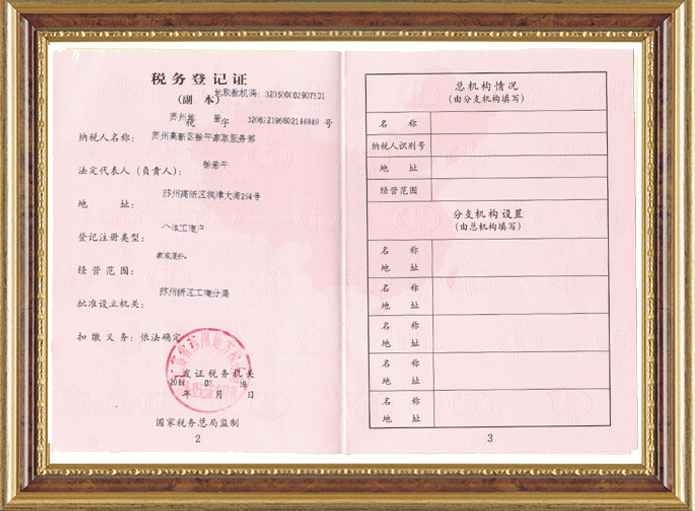 税务登记证
(副 本)
地税微机码: 320500002907501
苏州地 税 字 320621966602146849 号
纳税人名称: 苏州高新区徐平家政服务部
法定代表人 (负责人):
地 址: 苏州高新区枫津大街254号
登记注册类型: 个体工商户
经营范围: 家政服务。
批准设立机关: 苏州新区工商分局
扣缴义务: 依法确定
发证税务机关
07 19
年 月 日
国家税务总局监制
2
总机构情况
(由分支机构填写)
名 称
纳税人识别号
地 址
经营范围
分支机构设置
(由总机构填写)
名 称
地 址
名 称
地 址
名 称
地 址
名 称
地 址
名 称
地 址
3